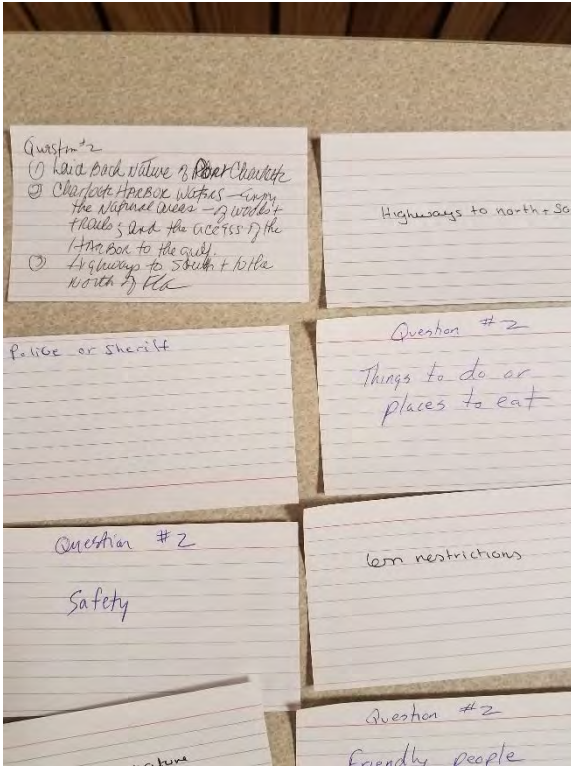 Question #2
① Laid Back Nature of Port Charlotte
② Charlotte HARBOR Waters - Enjoy
the Natural areas - of woods +
trails; and the access of the
HARBOR to the gulf.
③ Highways to South + to the
North of Fla
Highways to north + So
Police or Sheriff
Question #2
Things to do or
places to eat
Question #2
Safety
less restrictions
ature
Question #2
friendly people